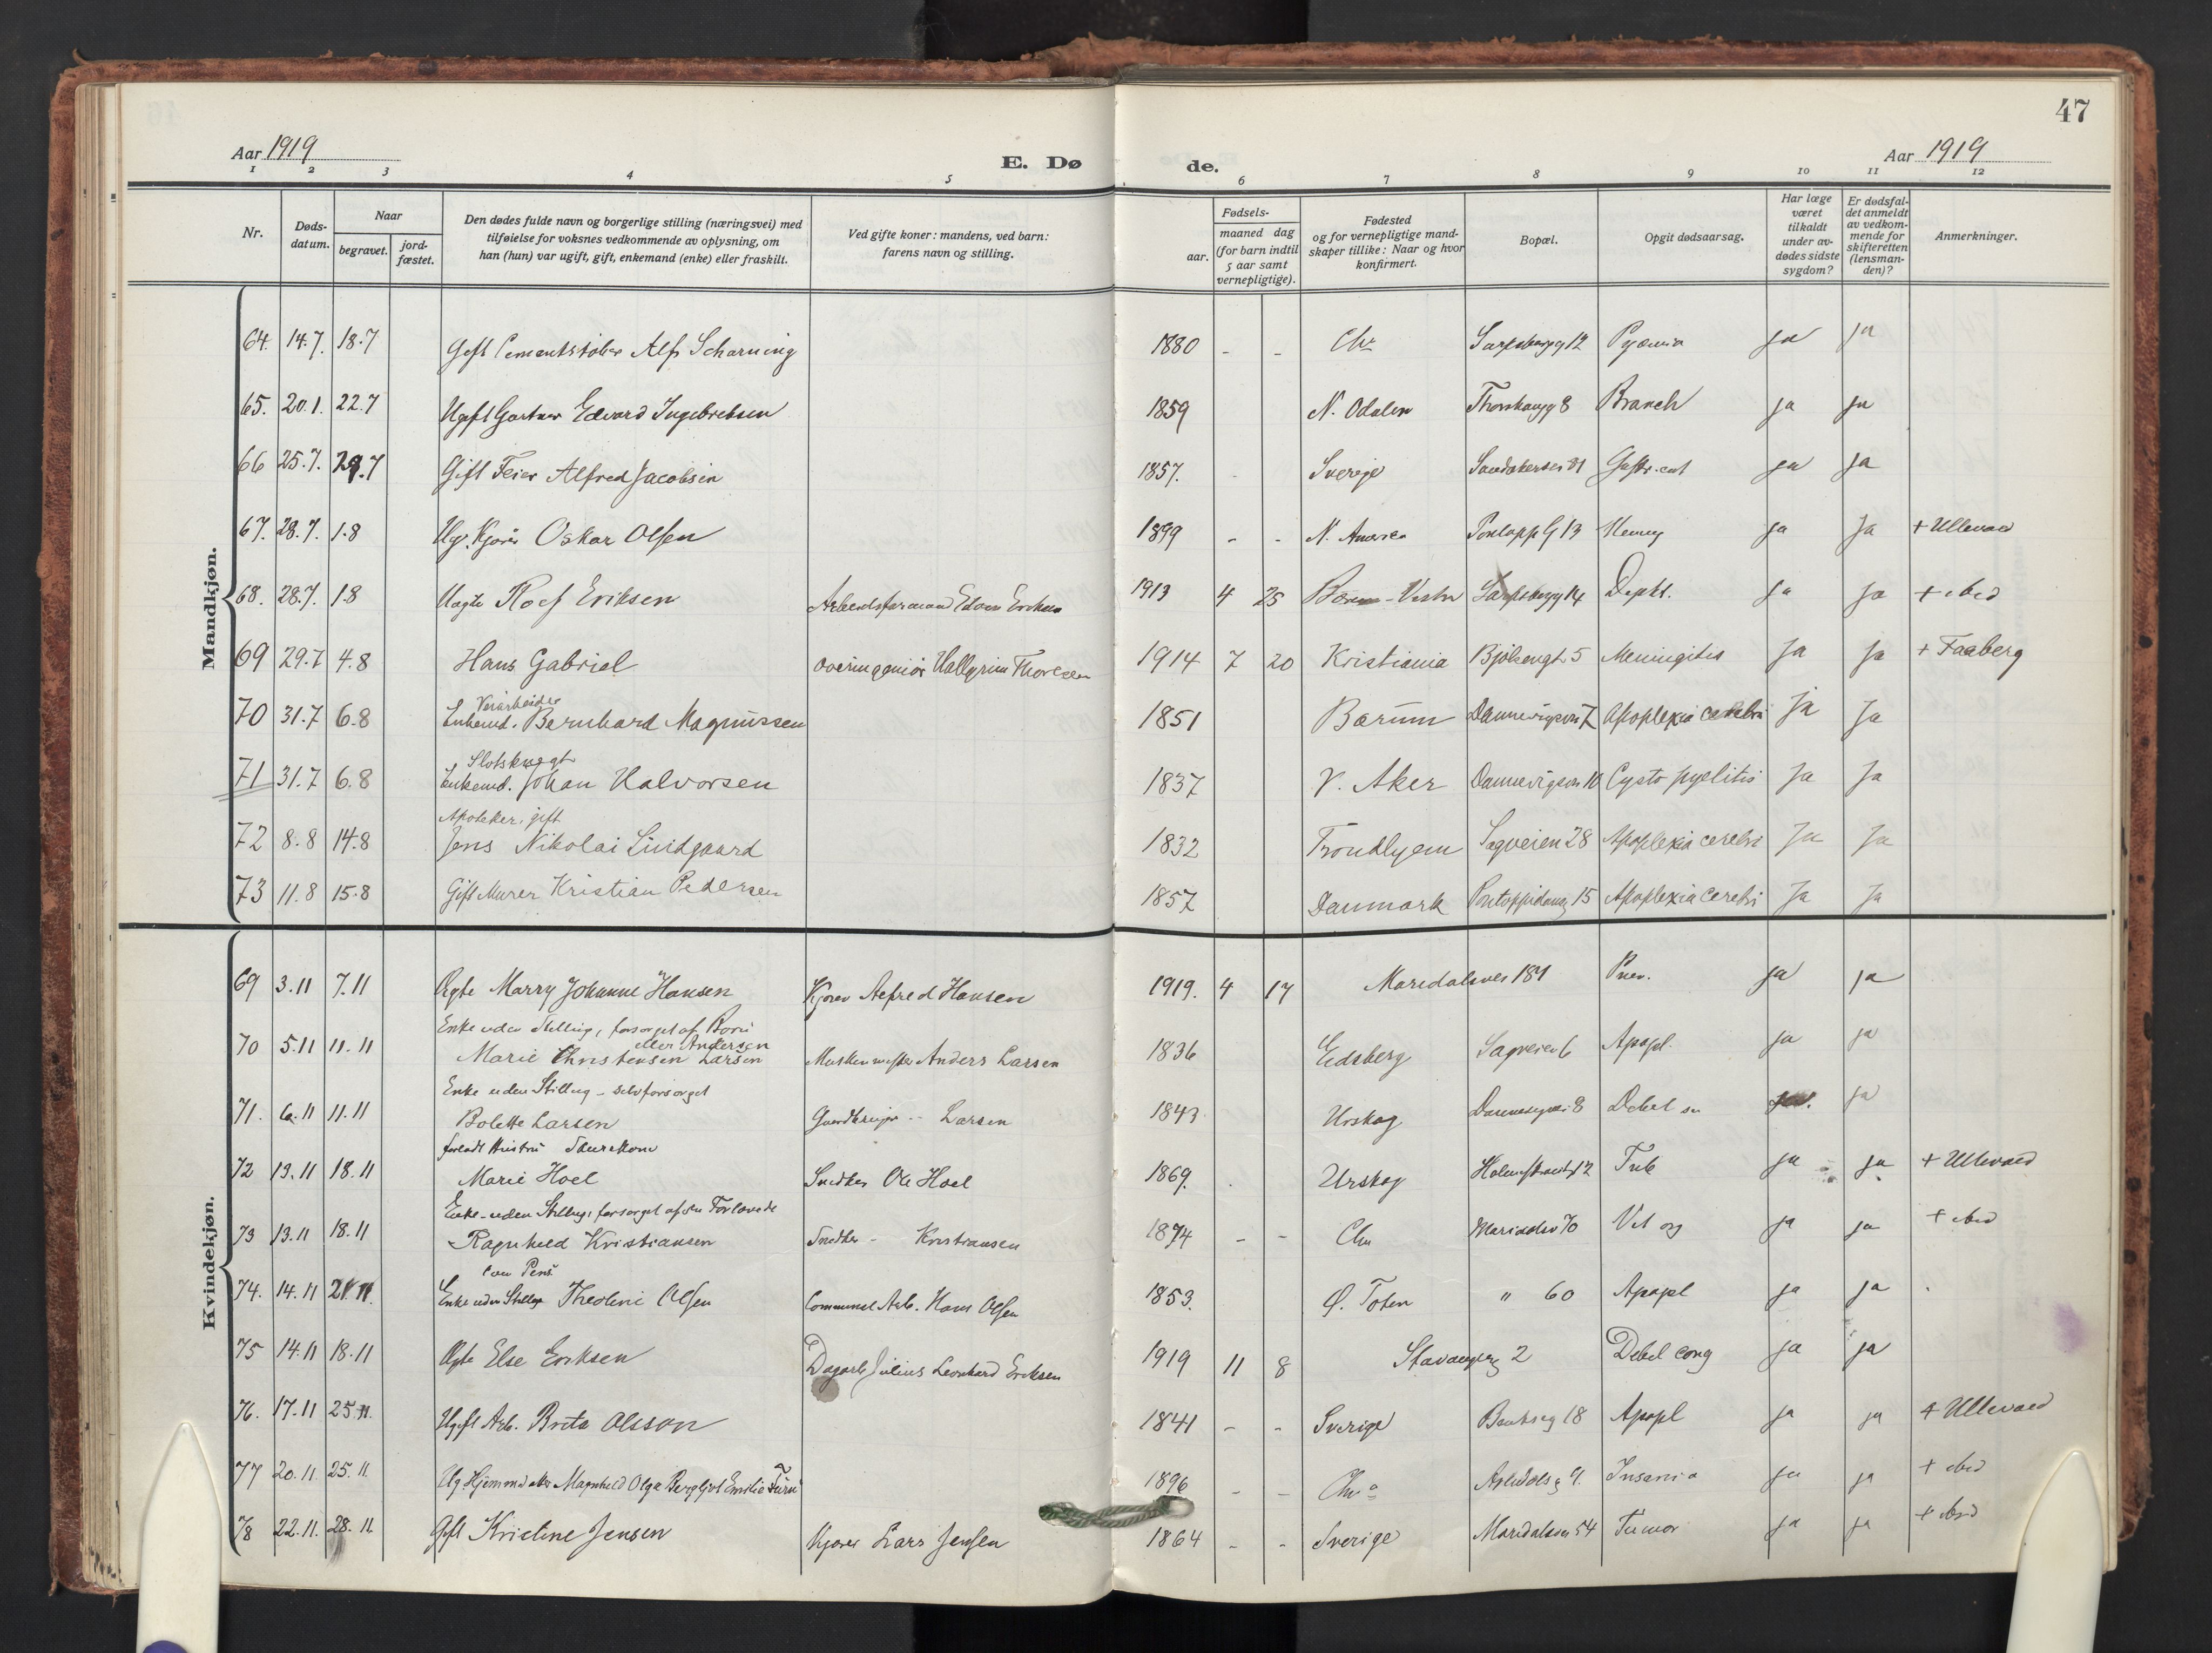 47
Aar 1919
E. Døde.
Aar 1919
1 2 3 4 5 6 7 8 9 10 11 12
Nr.
Døds-datum.
Naar
begravet.
jord-fæstet.
Den dødes fulde navn og borgerlige stilling (næringsvei) med
tilføielse for voksnes vedkommende av oplysning, om
han (hun) var ugift, gift, enkemand (enke) eller fraskilt.
Ved gifte koner: mandens, ved barn:
farens navn og stilling.
Fødsels-
aar.
maaned dag
(for barn indtil
5 aar samt
vernepligtige).
Fødested
og for vernepligtige mand-
skaper tillike: Naar og hvor
konfirmert.
Bopæl.
Opgit dødsaarsag.
Har læge
været
tilkaldt
under av-
dødes sidste
sygdom?
Er dødsfal-
det anmeldt
av vedkom-
mende for
skifteretten
(lensman-
den)?
Anmerkninger.
Mandkjøn.
64. 14.7. 18.7 Gift Alf Scharning 1880 - - Chr Pyæmia ja ja
65. 20.1. 22.7 Ugift Gartner Edvard Ingebretsen 1859 N. Odalen 8 Bronch ja ja
66 25.7. 29.7 Gift Feier Alfred Jacobsen 1857. Sverige ja ja
67. 28.7. 1.8 Ug. Kjører Oskar Olsen 1899 - - N. Amerika Pontopp G 13 ja ja + Ullevaal
68. 28.7. 1.8 Uægte Rolf Eriksen Arbeidsformand Edvin Eriksen 1913 4 25 Bærum Vestre 14 ja ja + ibid
69 29.7 4.8 Hans Gabriel overingeniør Hallgrim Thoresen 1914 7 20 Kristiania 5 Meningitis Ja Ja + Faaberg
70 31.7 6.8 Veiarbeider
Enkemd. Bernhard Magnussen 1851 Bærum 7 Apoplexia cerebri Ja Ja
71 31.7 6.8 Slotsknegt
Enkemd. Johan Halvorsen 1837 V. Aker 10 Cysto pyelitis Ja Ja
72 8.8 14.8 Apoteker, gift
Jens Nikolai Lindgaard 1832 Trondhjem Sagveien 28 Apoplexia cerebri Ja Ja
73 11.8 15.8 Gift Murer Kristian Pedersen 1857 Danmark Pontoppidansg 15 Apoplexia cerebri Ja Ja
Kvindekjøn.
69 3.11 7.11 Ægte Marry Johanne Hansen Kjører Alfred Hansen 1919. 4 17 Maridalsvei Pnev. ja ja
70 5.11 11.11 Enke uden Stilling, forsørget af Børn
eller Andersen
Marie Christensen Larsen Anders Larsen 1836 Eidsberg Sagveien 6 Apopl. ja ja
71. 6.11 11.11 Enke uden Stilling - selvforsørget
Bolette Larsen Larsen 1843 Urskog 8 Debil sen ja. ja
72 13.11 18.11 forladt Hustru Skurekone
Marie Hoel Snedker Ole Hoel 1869. Urskog 12 Tub ja ja + Ullevaal
73 13.11 18.11 Enke uden Stilling, forsørget af sin Forlovede
Ragnhild Kristiansen Snedker - Kristiansen 1874 - - Chr 70 Vit org ja ja + ibid
74. 14.11 21.11. Enke uden Stilling Theoline Olsen Communal Arb. Hans Olsen 1853. Ø. Toten " 60 Apopl ja ja
75 14.11 18.11 Ægte Else Eriksen Dagarb Julius Leonhard Eriksen 1919 11 8 Stavangerg 2 Debil cong ja ja
76. 17.11 25.11. Ugift Arb. Brita Olsson 1841 - - Sverige 18 Apopl ja ja + Ullevaal
77 20.11. 25.11. Ug. Magnhild Olga Bergljot Emilie 1896 - - Chra 9. Insania ja ja + ibid
78 22.11. 28.11. Gift Kristine Jensen Kjører Lars Jensen 1864 - - Sverige Maridalsvei 54 Tumor ja ja + ibid